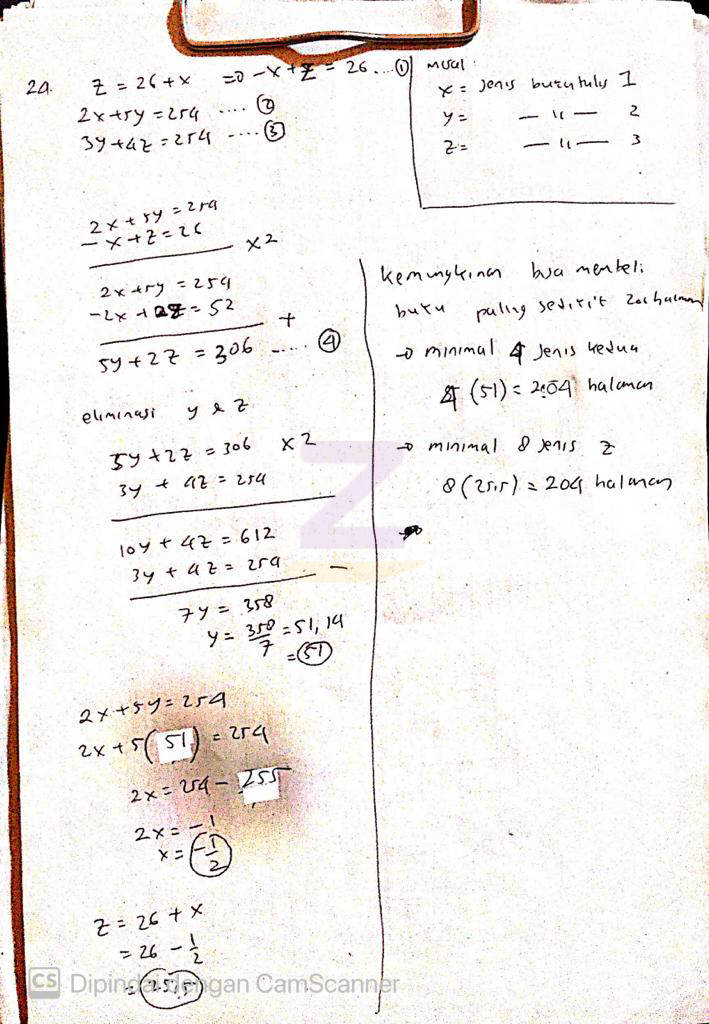 2a. z = 26 + x => -x + z = 26 ... ①
2x + 5y = 254 .... ②
3y + 4z = 254 .... ③
misal :
x = jenis buku tulis 1
y = — 11 — 2
z = — 11 — 3
2x + 5y = 254
-x + z = 26
x 2
2x + 5y = 254
-2x + 2z = 52
+
5y + 2z = 306 ..... ④
eliminasi y & z
5y + 2z = 306 x 2
3y + 4z = 254
10y + 4z = 612
3y + 4z = 254
-
7y = 358
y = 358/7 = 51,14
= 51
2x + 5y = 254
2x + 5(51) = 254
2x = 254 - 255
2x = -1
x = -1/2
z = 26 + x
= 26 - 1/2
= 25,5
kemungkinan bisa membeli
buku paling sedikit halaman
→ minimal 4 jenis kedua
4 (51) = 204 halaman
→ minimal 8 jenis z
8 (25,5) = 204 halaman
Z
CS Dipindai dengan CamScanner